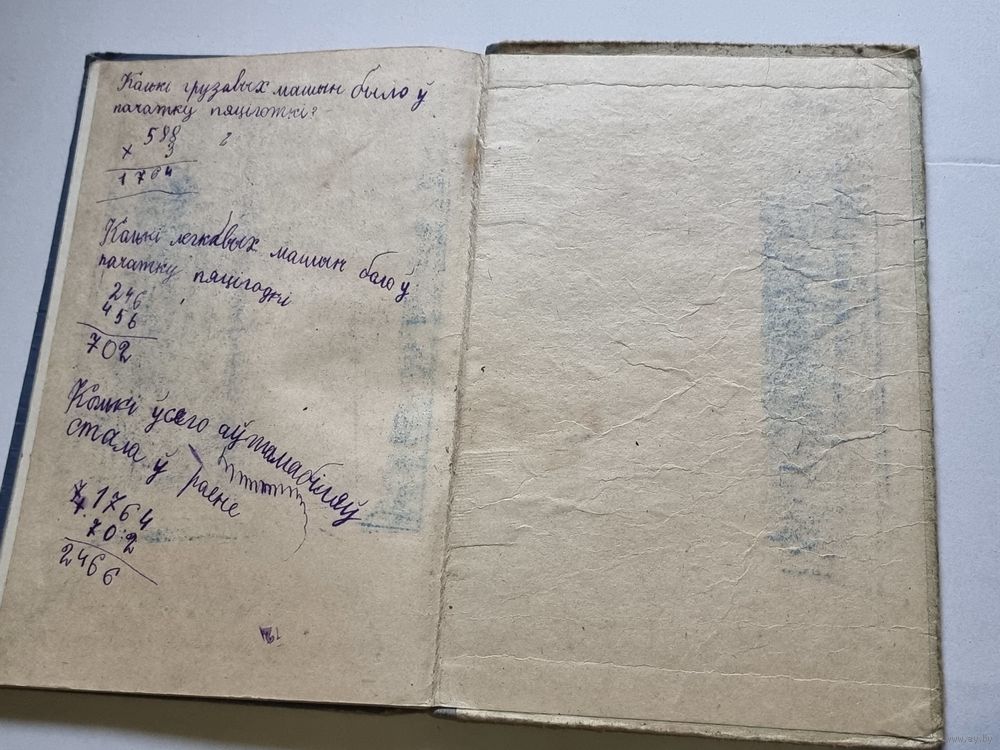 Колькі грузавых машын было ў
пачатку пяціготкі?
588
× 3
1764
Колькі легкавых машын было ў
пачатку пяцігодкі
246
456
702
Колькі ўсяго аўтамабіляў
стала ў раене
1764
702
2466
www.ay.by